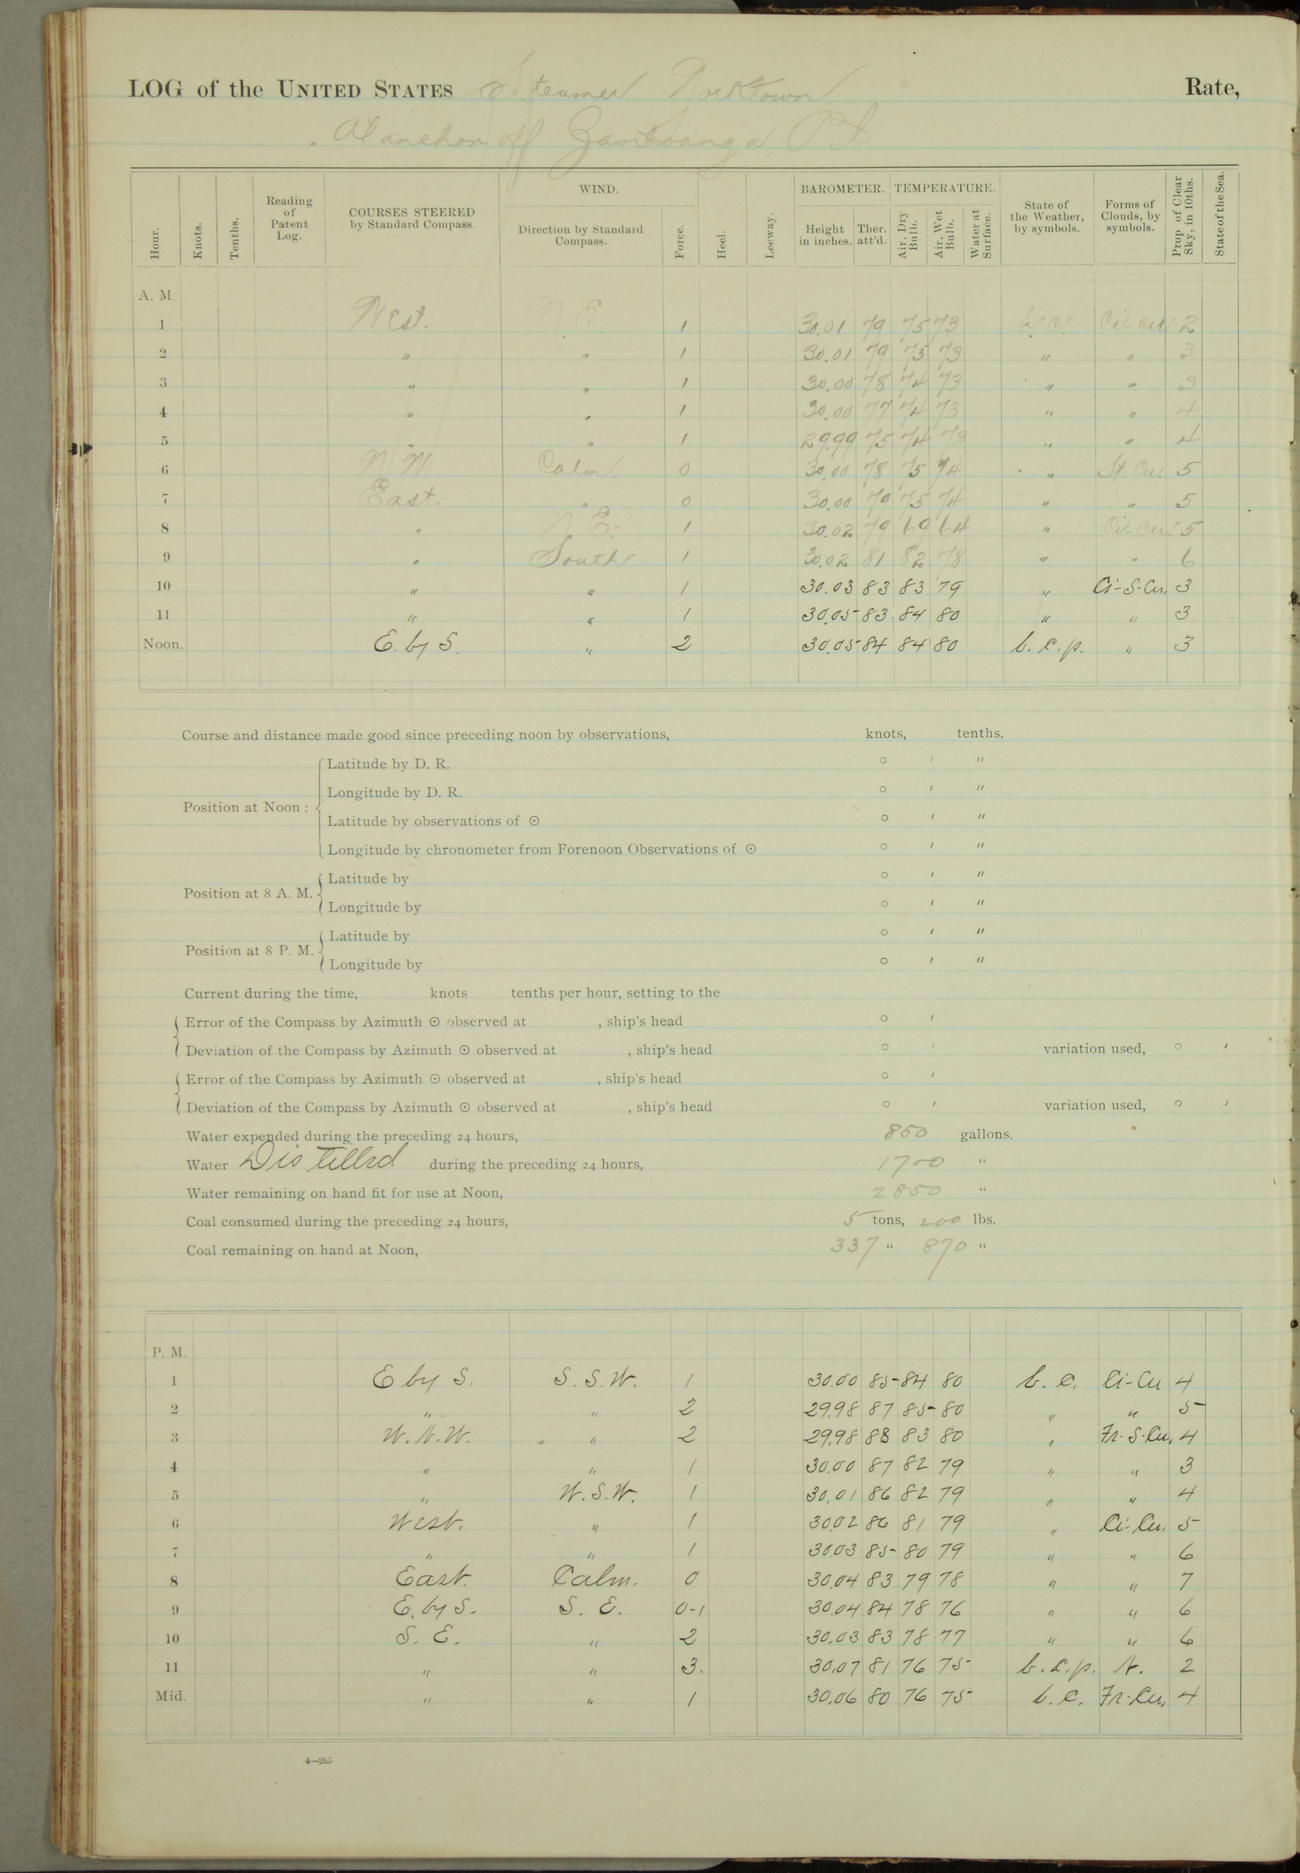 LOG of the UNITED STATES Steamer Yorktown Rate,
At anchor off Zamboanga, P.I.
Hour. Knots. Tenths. Reading of Patent Log. COURSES STEERED by Standard Compass. WIND. Direction by Standard Compass. Force. Heel. Leeway. BAROMETER. Height in inches. Ther. att'd. TEMPERATURE. Air, Dry Bulb. Air, Wet Bulb. Water at Surface. State of the Weather, by symbols. Forms of Clouds, by symbols. Prop. of Clear Sky, in 10ths. State of the Sea.
A. M.
1 West. N.E. 1 30.01 79 75 73 b.c. Ci-cu 2
2 " " 1 30.01 79 75 73 " " 3
3 " " 1 30.00 78 74 73 " " 3
4 " " 1 30.00 77 74 73 " " 4
5 " " 1 29.99 75 74 73 " " 4
6 N.W. Calm. 0 30.00 78 75 74 " St. Cu. 5
7 East. " 0 30.00 79 75 74 " " 5
8 " N.E. 1 30.02 79 69 64 " Ci-Cu. 5
9 " South 1 30.02 81 82 78 " " 6
10 " " 1 30.03 83 83 79 " Ci-S-Cu. 3
11 " " 1 30.05 83 84 80 " " 3
Noon. E. by S. " 2 30.05 84 84 80 b.c.p. " 3
Course and distance made good since preceding noon by observations, knots, tenths.
Position at Noon :
Latitude by D. R. ° ′ ″
Longitude by D. R. ° ′ ″
Latitude by observations of ☉ ° ′ ″
Longitude by chronometer from Forenoon Observations of ☉ ° ′ ″
Position at 8 A. M.
Latitude by ° ′ ″
Longitude by ° ′ ″
Position at 8 P. M.
Latitude by ° ′ ″
Longitude by ° ′ ″
Current during the time, knots tenths per hour, setting to the
Error of the Compass by Azimuth ☉ observed at , ship's head ° ′
Deviation of the Compass by Azimuth ☉ observed at , ship's head ° ′ variation used, ° ′
Error of the Compass by Azimuth ☉ observed at , ship's head ° ′
Deviation of the Compass by Azimuth ☉ observed at , ship's head ° ′ variation used, ° ′
Water expended during the preceding 24 hours, 850 gallons.
Water Distilled during the preceding 24 hours, 1700 "
Water remaining on hand fit for use at Noon, 2850 "
Coal consumed during the preceding 24 hours, 5 tons, 200 lbs.
Coal remaining on hand at Noon, 337 " 870 "
P. M.
1 E by S. S.S.W. 1 30.00 85 84 80 b.c. Ci-Cu 4
2 " " 2 29.98 87 85 80 " " 5
3 W.N.W. " 2 29.98 88 83 80 " Fr-S-Cu. 4
4 " " 1 30.00 87 82 79 " " 3
5 " W.S.W. 1 30.01 86 82 79 " " 4
6 West. " 1 30.02 86 81 79 " Ci-Cu. 5
7 " " 1 30.03 85 80 79 " " 6
8 East. Calm. 0 30.04 83 79 78 " " 7
9 E. by S. S. E. 0-1 30.04 84 78 76 " " 6
10 S. E. " 2 30.03 83 78 77 " " 6
11 " " 3. 30.07 81 76 75 b.c.p. N. 2
Mid. " " 1 30.06 80 76 75 b.c. Fr-Cu. 4
4—265